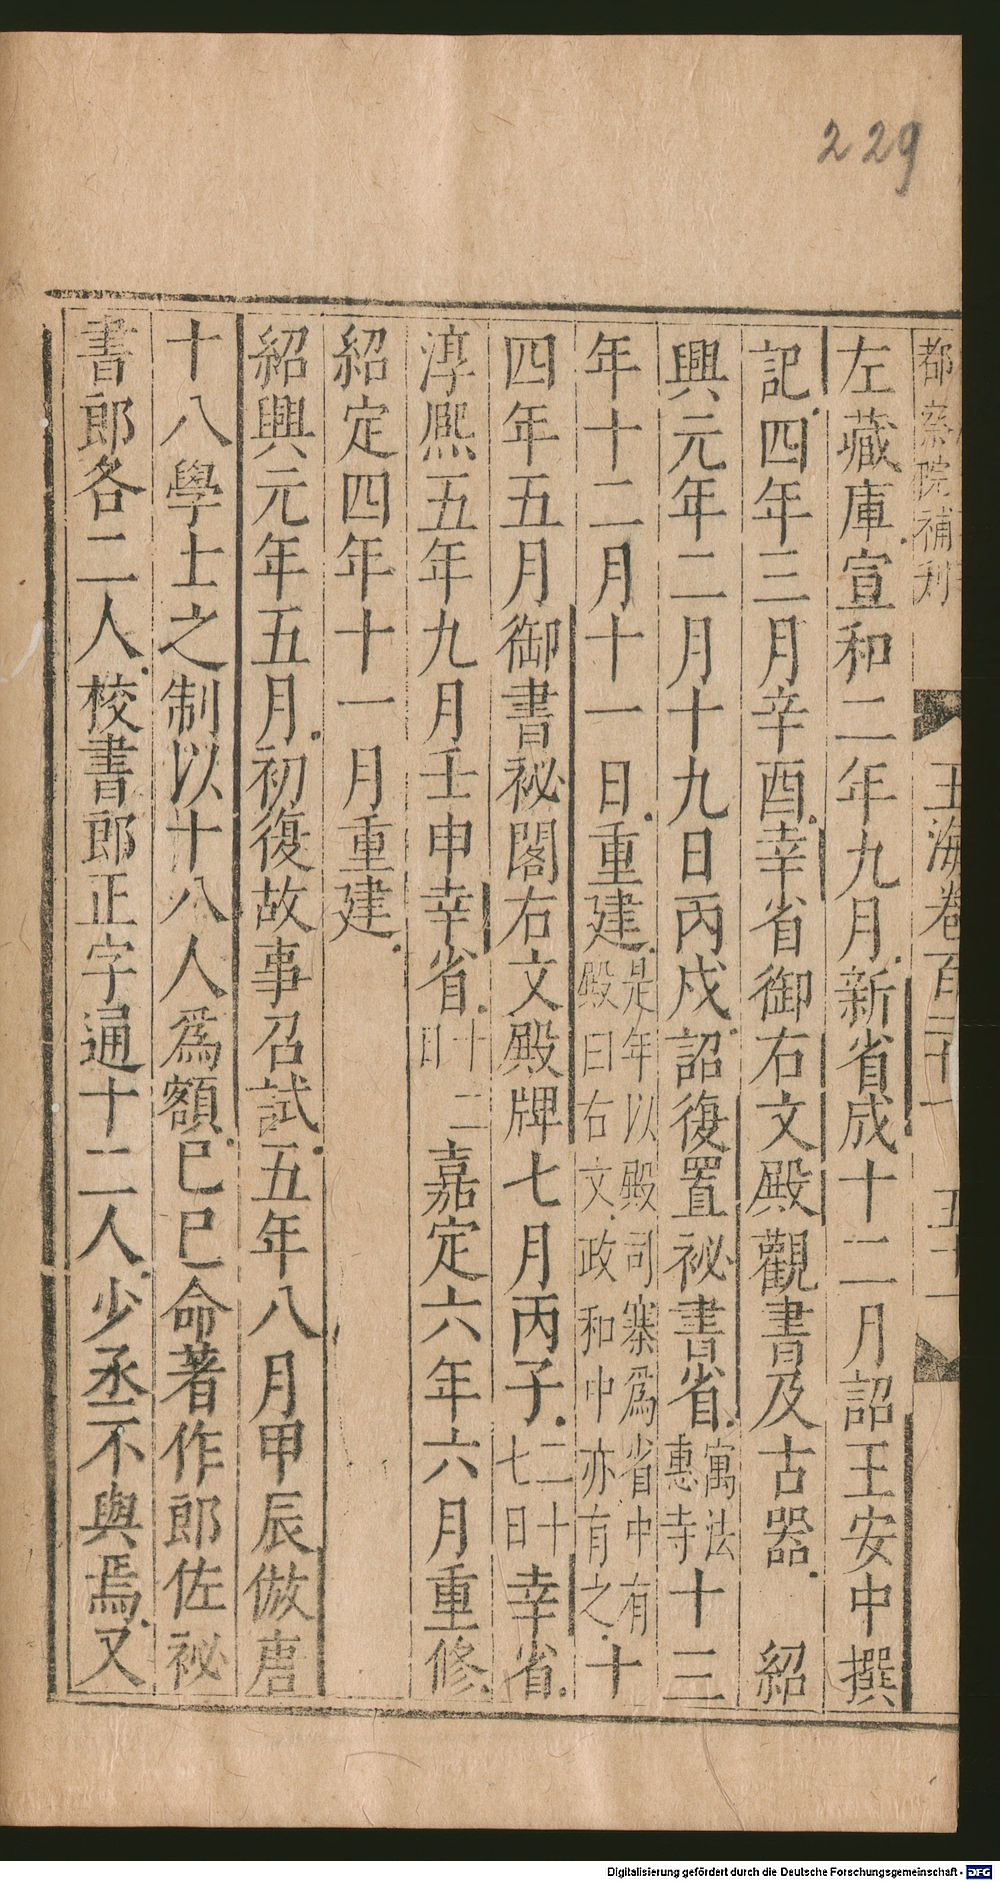 229
都察院補刋
玉海卷百二十一 五十一
左藏庫宣和二年九月新省成十二月詔王安中撰
記四年三月辛酉幸省御右文殿觀書及古器 紹
興元年二月十九日丙戌詔復置祕書省寓法惠寺十三
年十二月十一日重建是年以殿司寨爲省中有殿曰右文政和中亦有之十
四年五月御書祕閣右文殿牌七月丙子二十七日幸省
淳熈五年九月壬申幸省十二日嘉定六年六月重修
紹定四年十一月重建
紹興元年五月初復故事召試五年八月甲辰倣唐
十八學士之制以十八人爲額已巳命著作郎佐祕
書郎各二人校書郎正字通十二人少丞不與焉又
Digitalisierung gefördert durch die Deutsche Forschungsgemeinschaft - DFG